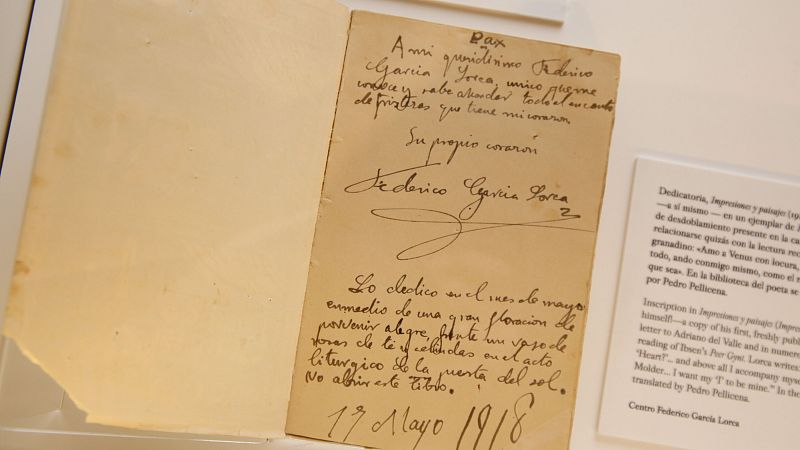 Pax
A mi queridisimo Federico
Garcia Lorca, unico que me
conoce y sabe ahondar todo el encanto
de tristezas que tiene mi corazon
Su propio corazón
Federico Garcia Lorca
Lo dedico en el mes de mayo
enmedio de una gran floracion de
porvenir alegre, frente un vaso de
rosas de té y celindas en el acto
liturgico de la puesta del sol.
No abrir este libro.
17 Mayo 1918
Dedicatoria, Impresiones y paisajes (19
—a sí mismo — en un ejemplar de
de desdoblamiento presente en la ca
relacionarse quizás con la lectura rec
granadino: «Amo a Venus con locura,
todo, ando conmigo mismo, como el
que sea». En la biblioteca del poeta se
por Pedro Pellicena.
Inscription in Impresiones y paisajes (Impre
himself!—a copy of his first, freshly publ
letter to Adriano del Valle and in numero
reading of Ibsen's Peer Gynt. Lorca writes:
'Heart?'... and above all I accompany myse
Molder... I want my 'I' to be mine." In the
translated by Pedro Pellicena.
Centro Federico García Lorca